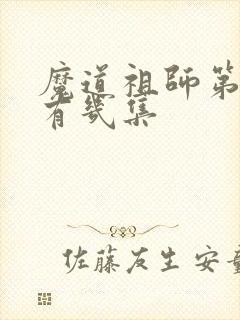 魔道祖師第
有幾集
佐藤友生安